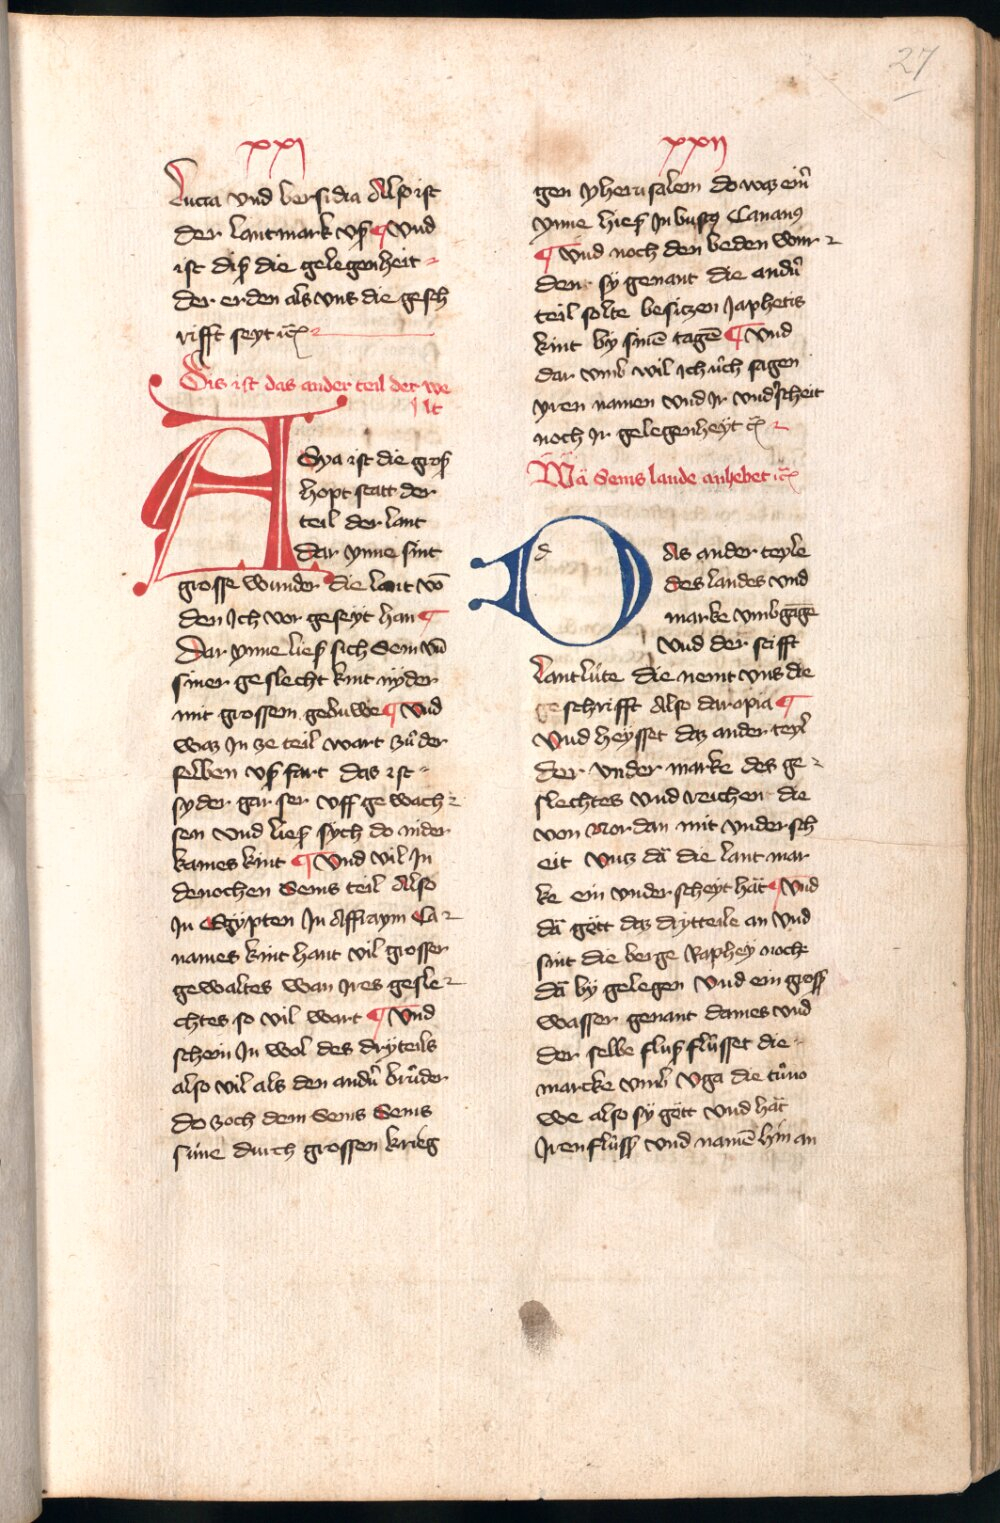 27
xxi
Lucca vnd bersidia Also ist
der lantmark vß ¶ Vnd
ist diß die gelegenheit
der erden als vns die gesch
rifft seyt ꝛc̃
Dis ist das ander teil der we
lt
ASya ist die groß
hopt statt der
teil der lant
dar ynne sint
grosse wunder die lant võ
den Ich vor geseyt han ¶
Dar ynne ließ sich Sem vñ
siner geslecht kint nÿder
mit grossem gebuwe ¶ Vnd
waz In ze teil wart zů der
selben vß fart das ist
syder gar ser vff ge wach
sen vnd ließ sÿch do nider
kames kint ¶ Vnd vil In
dennochen Sems teil Also
In Egÿpten In Affraym Ca
names kint hant vil grosser
gewaltes wan Ires gesle
chtes so vil wart ¶ Vnd
schein In wol des drÿteils
also vil als den andn̄ brůder
do zoch dem Sems Sems
süne durch grossen krieg
xxii
gen yherusalem do waz ein̄
ynne hieß Jnbusꝰ Cananꝰ
¶ Vnd noch den beden wur
den sy genant die andn̄
teil solte besiczen Japhetis
kint by sinē tagē ¶ Vnd
dar vmb wil ich ůch sagen
yren namen vnd Ir vndʼscheit
noch Ir gelegenheÿt ꝛc̃
Wä Sems lande anhebet ꝛc̃
d
DAs ander teyle
des landes vnd
marke vmbgāge
Vnd der stifft
lantlůte die nemt vns die
ge schrifft Also daropia ¶
Vnd heÿsset daz ander teyl
der vnder marke des ge
slechtes vnd reichen die
von Nordan mit vndersch
eit vntz dä die lant mar
ke ein vnder scheyt hät ¶ Vnd
dä gett daz drÿtteile an Vnd
sint die berge Raphey noch
dä bÿ gelegen Vnd ein gross
wasser genant dames vnd
der selbe fluß flüsset die
marcke vmb Vga die tůno
we also sÿ gett vnd hät
Iren flůss vnd namē hin an